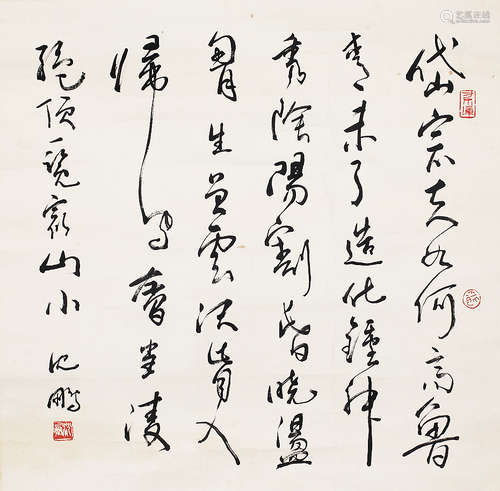 岱宗夫如何齊魯
青未了造化鍾神
秀陰陽割昏曉盪
胷生曾雲決眥入
歸鳥會當凌
絕頂一覽衆山小 沈鵬